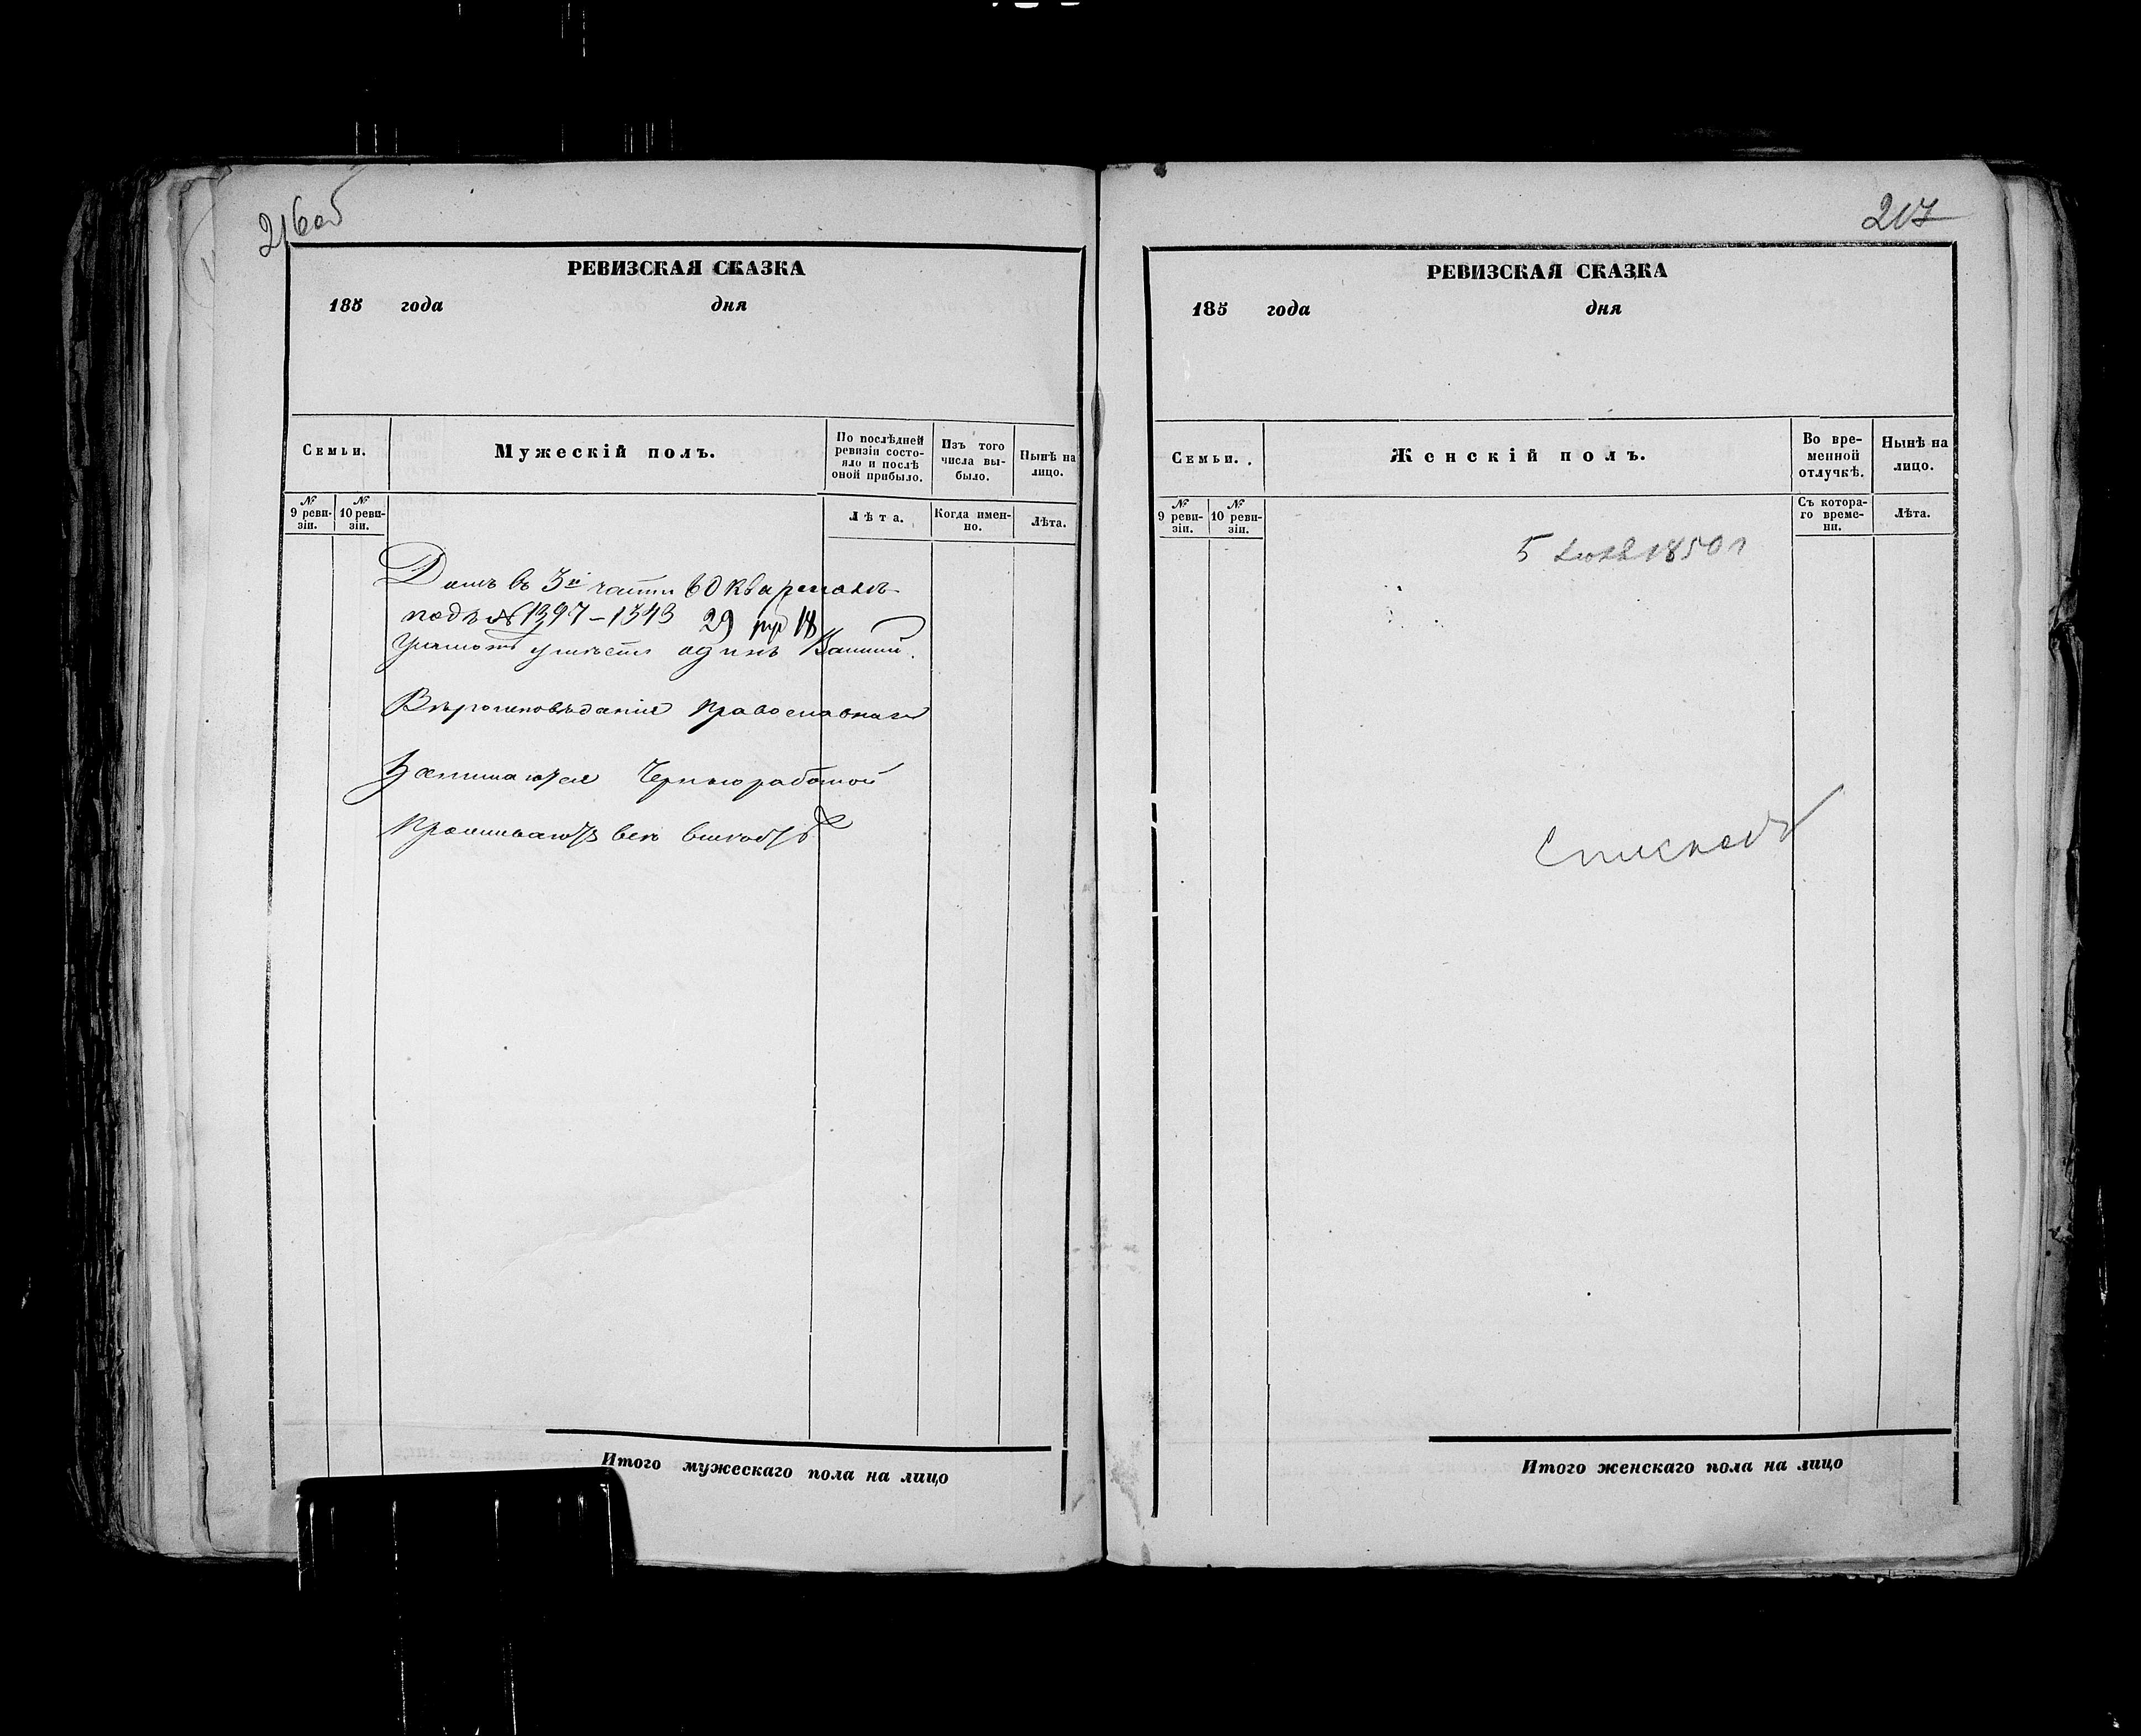 216об
РЕВИЗСКАЯ СКАЗКА
185 года дня
Семьи.
Мужескій полъ.
По послѣдней ревизіи состояло и послѣ оной прибыло.
Изъ того числа выбыло.
Нынѣ на лицо.
№ 9 ревизіи.
№ 10 ревизіи.
Лѣта.
Когда именно.
Лѣта.
Домъ въ 3й части
подъ № 1397 – 1343 29 18
Грамотѣ умѣетъ одинъ
Вѣроисповѣданія православнаго
Занимаются Чернью работой
Проживаютъ всѣ
Итого мужескаго пола на лицо
217
РЕВИЗСКАЯ СКАЗКА
185 года дня
Семьи.
Женскій полъ.
Во временной отлучкѣ.
Нынѣ на лицо.
№ 9 ревизіи.
№ 10 ревизіи.
Съ котораго времени.
Лѣта.
5 1850 г
Итого женскаго пола на лицо